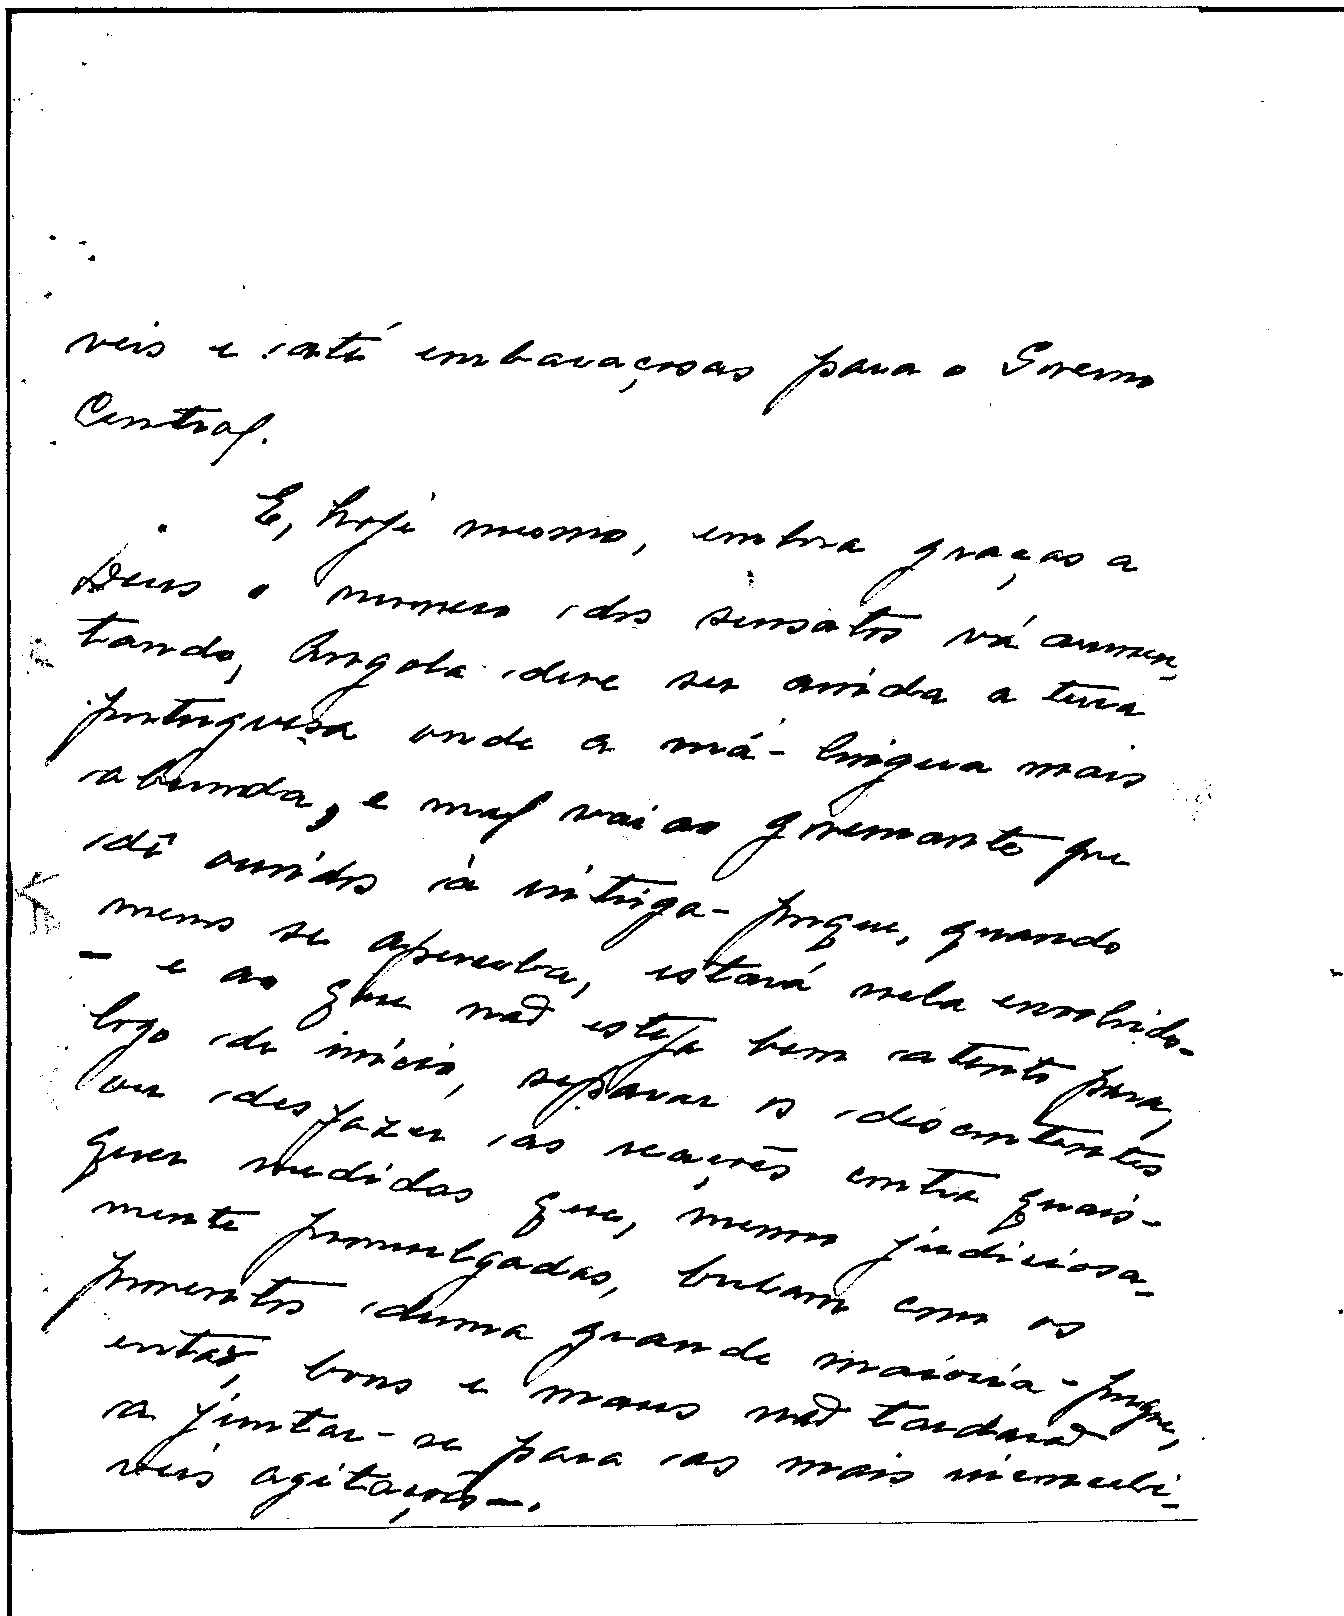 veis e até embaraçosas para o Governo
Central.
E, hoje mesmo, embora graças a
Deus o numero dos sensatos vá aumen-
tando, Angola deve ser ainda a terra
portuguesa onde a má-lingua mais
abunda, e mal vai ao governante que
dê ouvidos à intriga - porque, quando
menos se aperceba, estará nela envolvido -
- e ao que não esteja bem atento para,
logo de inicio, separar os discontentes
ou desfazer as reações contra quais-
quer medidas que, mesmo judiciosa-
mente promulgadas, bulam com os
proventos duma grande maioria - porque,
então, bons e maus não tardarão
a juntar-se para as mais incruli-
veis agitações -.